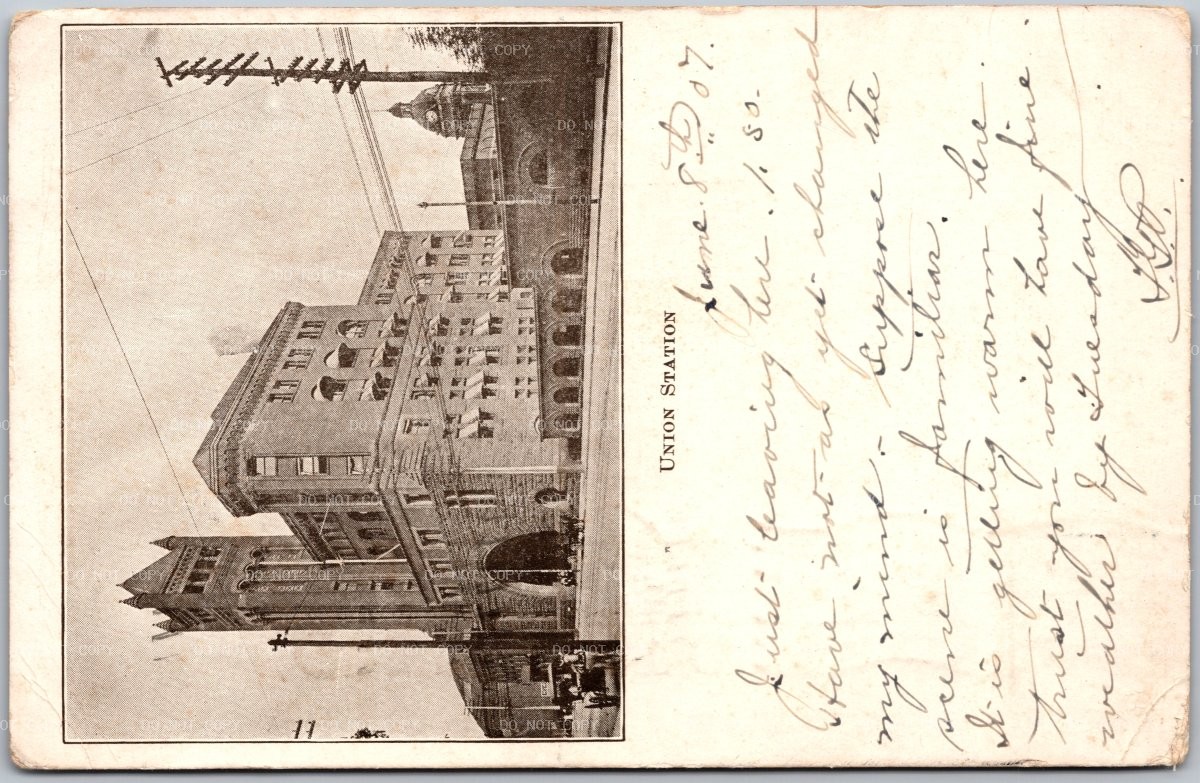 UNION STATION
June. 8th 07.
Just leaving here. 1.30.
Have not as yet changed
my mind. - Suppose the
scene is familiar.
It is getting warm here.
trust you will have fine
weather by Tuesday
11
DO NOT COPY